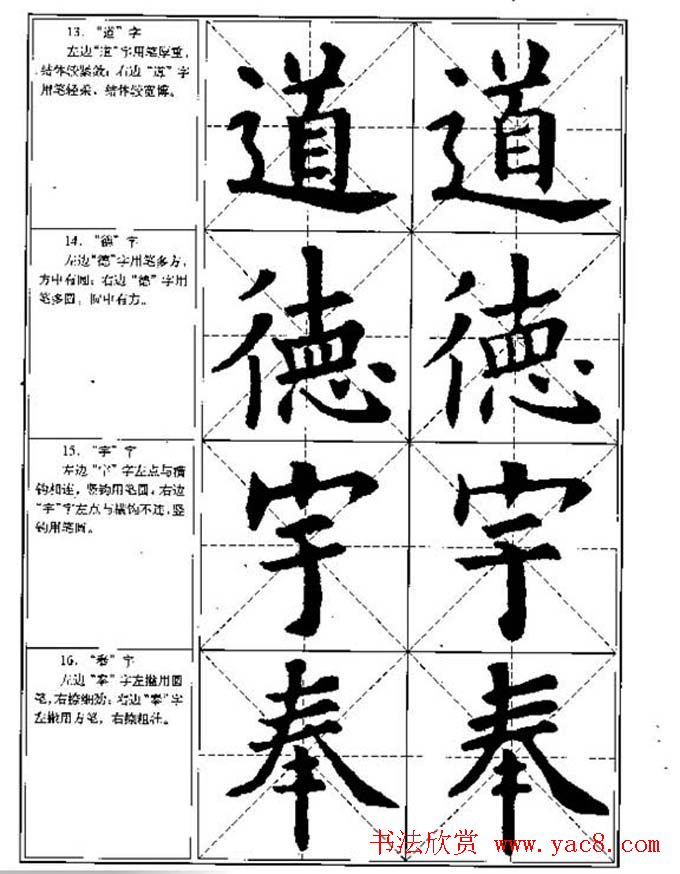 13. “道” 字
左边“道”字用笔厚重，
结体较紧敛；右边 “道” 字
用笔轻柔，结体较宽博。
道 道
14. “德” 字
左边“德”字用笔多方，
方中有圆；右边 “德” 字用
笔多圆，圆中有方。
德 德
15. “宇” 字
左边 “宇” 字左点与横
钩相连，竖钩用笔圆；右边
“宇”字左点与横钩不连，竖
钩用笔圆。
宇 宇
16. “奉” 字
左边 “奉” 字左撇用圆
笔，右捺细劲；右边 “奉” 字
左撇用方笔，右捺粗壮。
奉 奉
书法欣赏 www.yac8.com